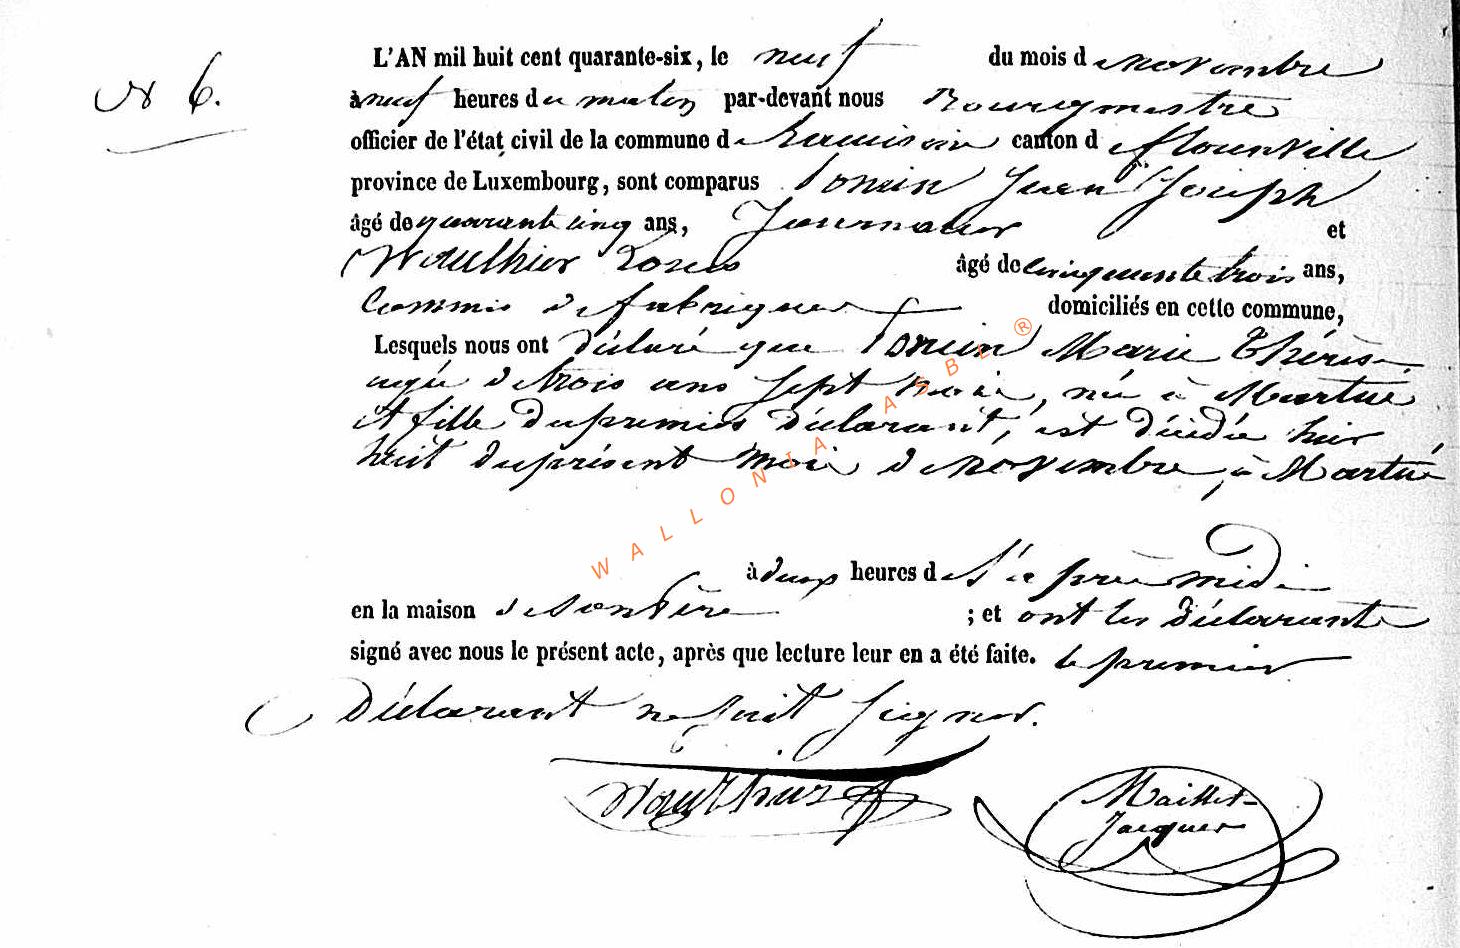 L'AN mil huit cent quarante-six, le neuf du mois de Novembre
N° 6.
à neuf heures du matin par-devant nous Bourgmestre
officier de l'état civil de la commune de canton de florenville
province de Luxembourg, sont comparus Jean Joseph
âgé de quarante cinq ans, Journalier et
Wauthier âgé de cinquante trois ans,
Commis de fabriques domiciliés en cette commune,
Lesquels nous ont déclaré que Marie Thérèse
agée de trois ans sept mois, née à Martué
et fille du premier Déclarant, est décédée hier
huit du présent mois de Novembre, à Martué
à deux heures de l'après midi
en la maison de son Père ; et ont les Déclarants
signé avec nous le présent acte, après que lecture leur en a été faite. le premier
Déclarant ne sait signer.
Wauthier
Maillet
Jacques
WALLONIA ASBL ®